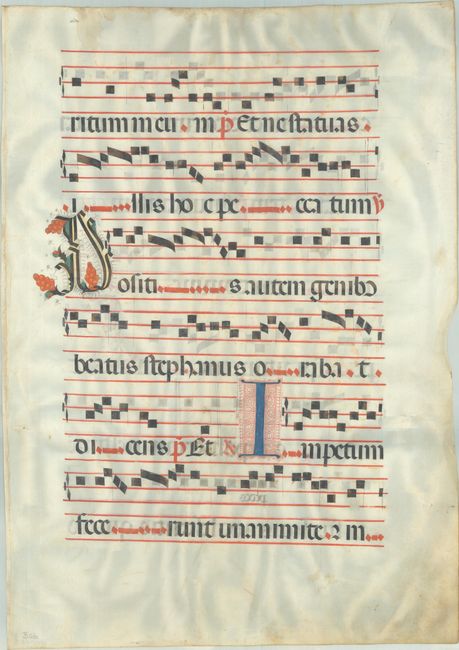 ritum meu . m p̄ Et ne statuas .
i . llis ho c pe . cca tum v̄
Positi . s autem genibꝰ
beatus stephanus o . raba . t .
di . cens p̄ Et R̸ I . mpetum
fece . runt unanimite . ꝛ in